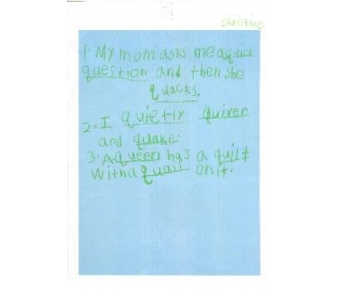 Christine
1. My mom asks me a quick
question and then she
quacks.
2. I quietly quiver
and quake.
3. A queen has a quilt
with a quail on it.